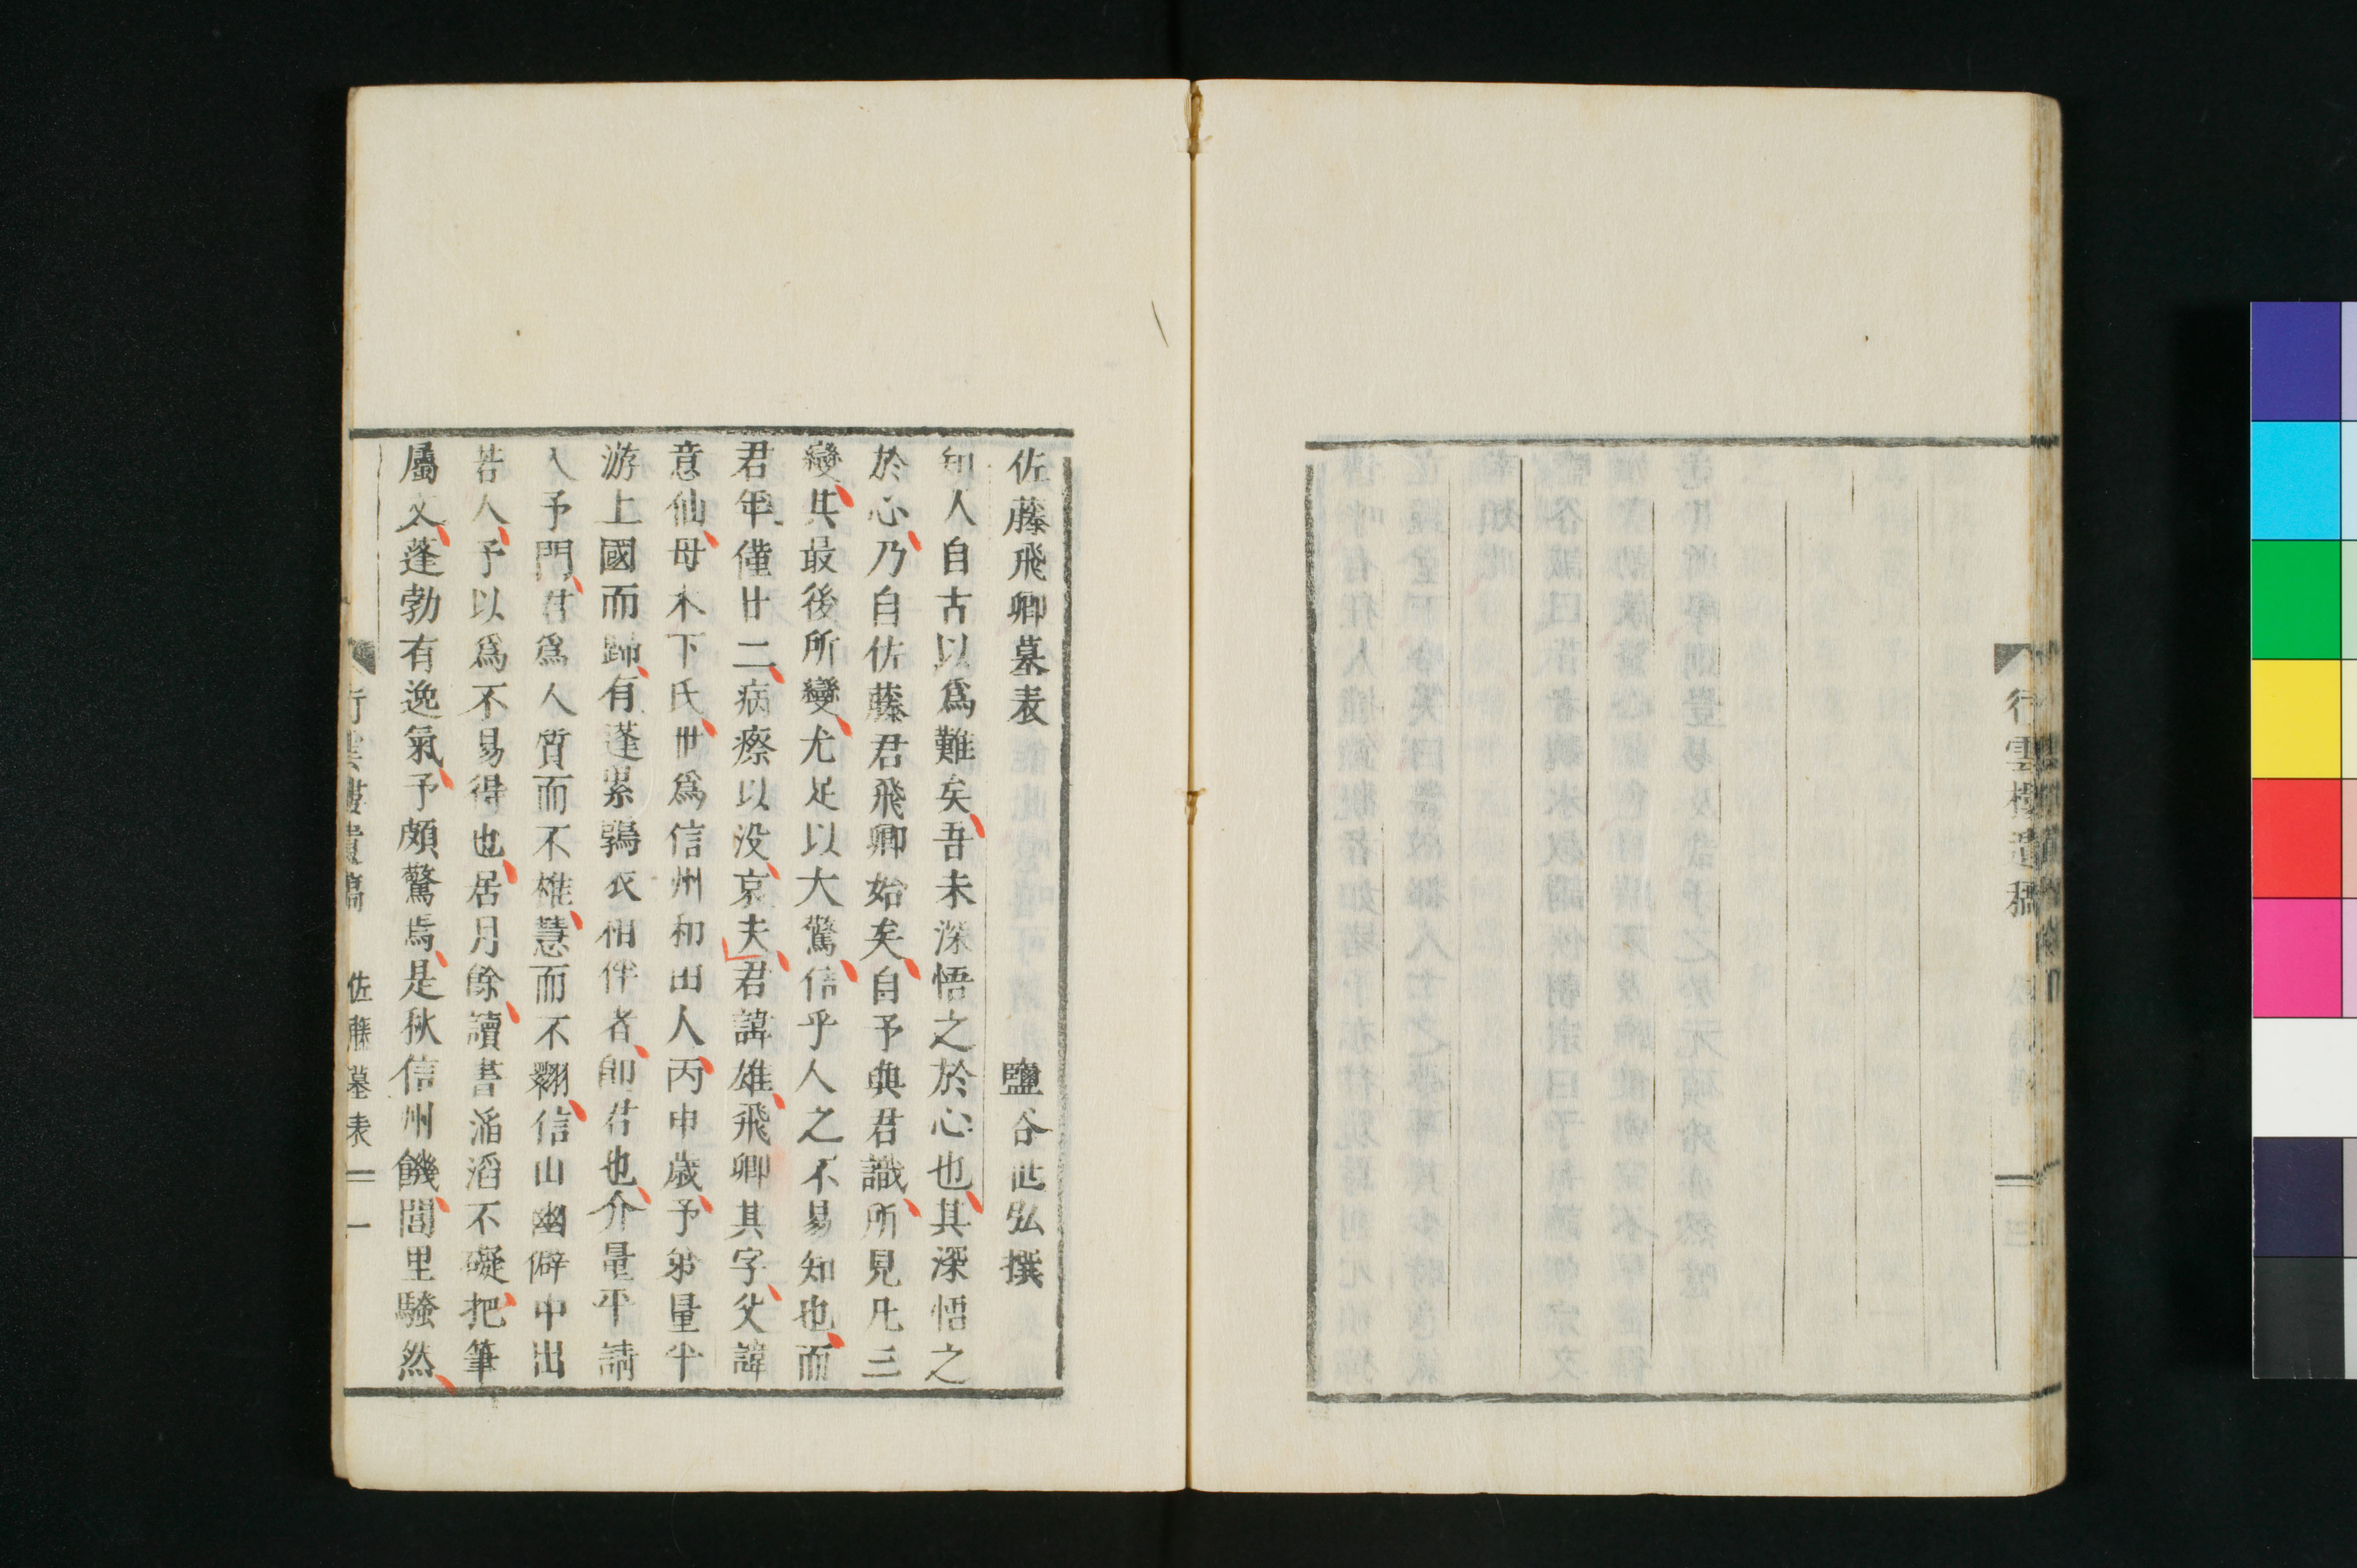 行雲樓遺稿
三
佐藤飛卿墓表
鹽谷世弘撰
知人自古以爲難矣吾未深悟之於心也其深悟之
於心乃自佐藤君飛卿始矣自予與君識所見凡三
變其最後所變尤足以大驚信乎人之不易知也而
君年僅廿二病瘵以没哀夫君諱雄飛卿其字父諱
意仙母木下氏世爲信州和田人丙申歳予弟量平
游上國而歸有蓬累鶉衣相伴者卽君也介量平請
入予門君爲人質而不雄慧而不翾信山幽僻中出
若人予以爲不易得也居月餘讀書滔滔不礙把筆
屬文蓬勃有逸氣予頗驚焉是秋信州饑閭里騷然
行雲樓遺稿
佐藤墓表
一